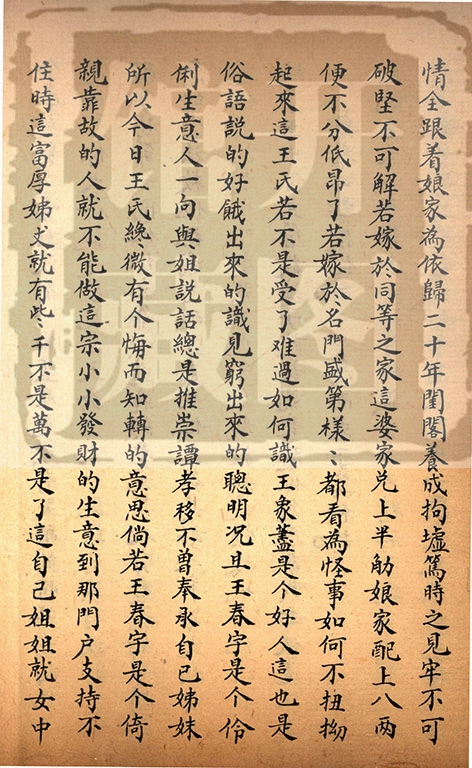 情全跟着娘家為依歸二十年閨閣養成拘墟篤時之見牢不可
破堅不可解若嫁於同等之家這婆家兑上半觔娘家配上八两
便不分低昂了若嫁於名門盛第様〻都看為怪事如何不扭拗
起來這王氏若不是受了难過如何識王象藎是个好人這也是
俗語説的好餓出來的識見窮出來的聰明况且王春宇是个伶
俐生意人一向與姐説話總是推崇譚孝移不曾奉承自己姊妹
所以今日王氏纔微有个悔而知轉的意思倘若王春宇是个倚
親靠故的人就不能做這宗小小發財的生意到那門户支持不
住時這富厚姊丈就有些〻千不是萬不是了這自己姐姐就女中